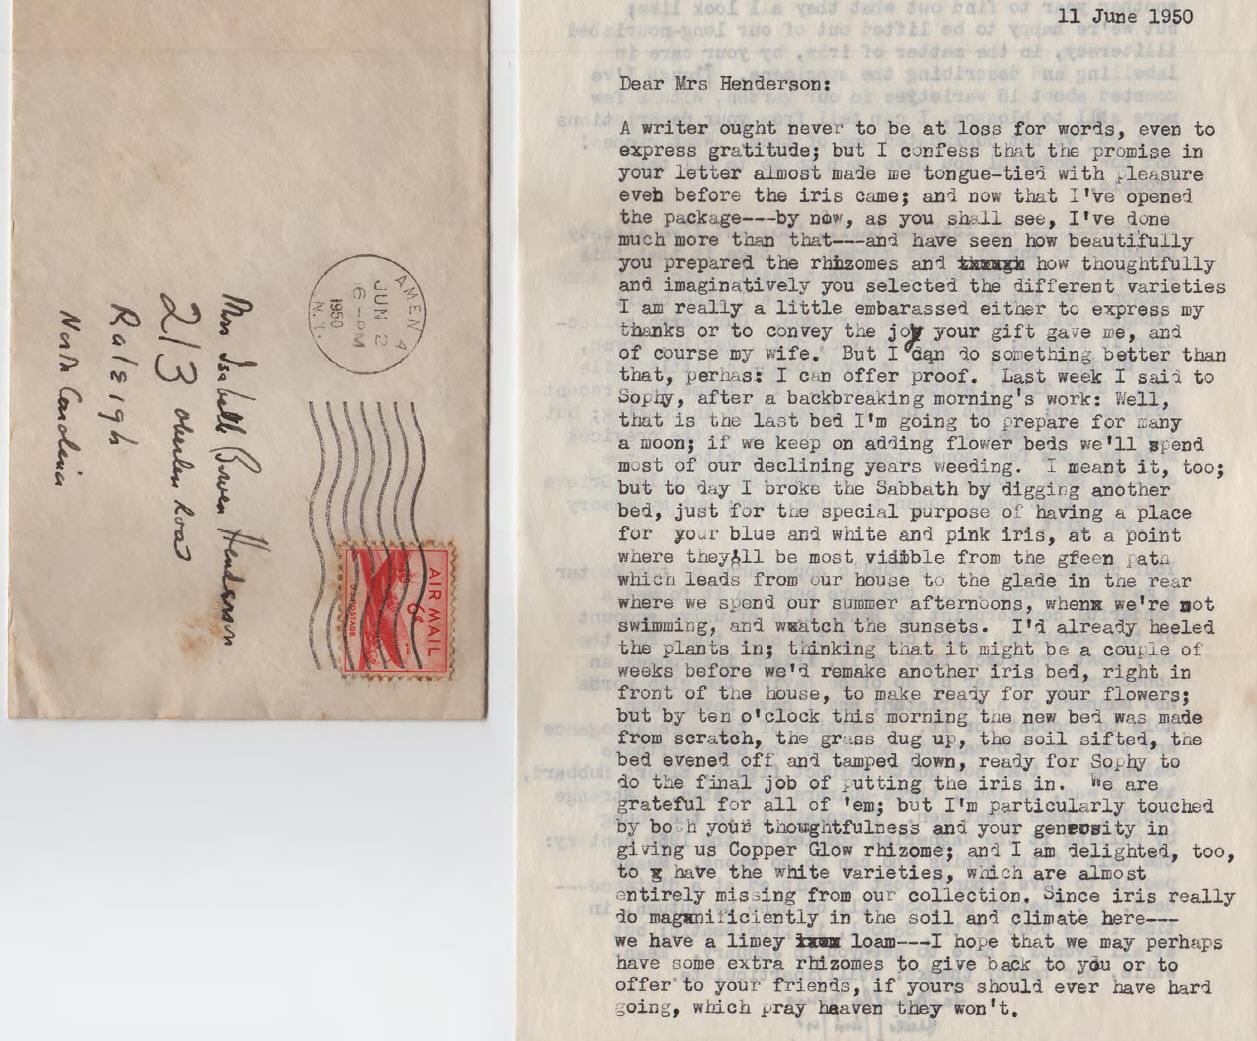 AMENIA
JUN 2
6-PM
1950
N.Y.
AIR MAIL
6¢
U.S. POSTAGE
Mrs Isabelle Bowen Henderson
213 Oberlin Road
Raleigh
North Carolina
11 June 1950
Dear Mrs Henderson:
A writer ought never to be at loss for words, even to
express gratitude; but I confess that the promise in
your letter almost made me tongue-tied with pleasure
even before the iris came; and now that I've opened
the package---by now, as you shall see, I've done
much more than that---and have seen how beautifully
you prepared the rhizomes and how thoughtfully
and imaginatively you selected the different varieties
I am really a little embarassed either to express my
thanks or to convey the joy your gift gave me, and
of course my wife. But I can do something better than
that, perhas: I can offer proof. Last week I said to
Sophy, after a backbreaking morning's work: Well,
that is the last bed I'm going to prepare for many
a moon; if we keep on adding flower beds we'll spend
most of our declining years weeding. I meant it, too;
but to day I broke the Sabbath by digging another
bed, just for the special purpose of having a place
for your blue and white and pink iris, at a point
where they'll be most visible from the green path
which leads from our house to the glade in the rear
where we spend our summer afternoons, when we're not
swimming, and watch the sunsets. I'd already heeled
the plants in; thinking that it might be a couple of
weeks before we'd remake another iris bed, right in
front of the house, to make ready for your flowers;
but by ten o'clock this morning the new bed was made
from scratch, the grass dug up, the soil sifted, the
bed evened off and tamped down, ready for Sophy to
do the final job of putting the iris in. We are
grateful for all of 'em; but I'm particularly touched
by both your thoughtfulness and your generosity in
giving us Copper Glow rhizome; and I am delighted, too,
to have the white varieties, which are almost
entirely missing from our collection. Since iris really
do magnificiently in the soil and climate here---
we have a limey loam---I hope that we may perhaps
have some extra rhizomes to give back to you or to
offer to your friends, if yours should ever have hard
going, which pray heaven they won't.